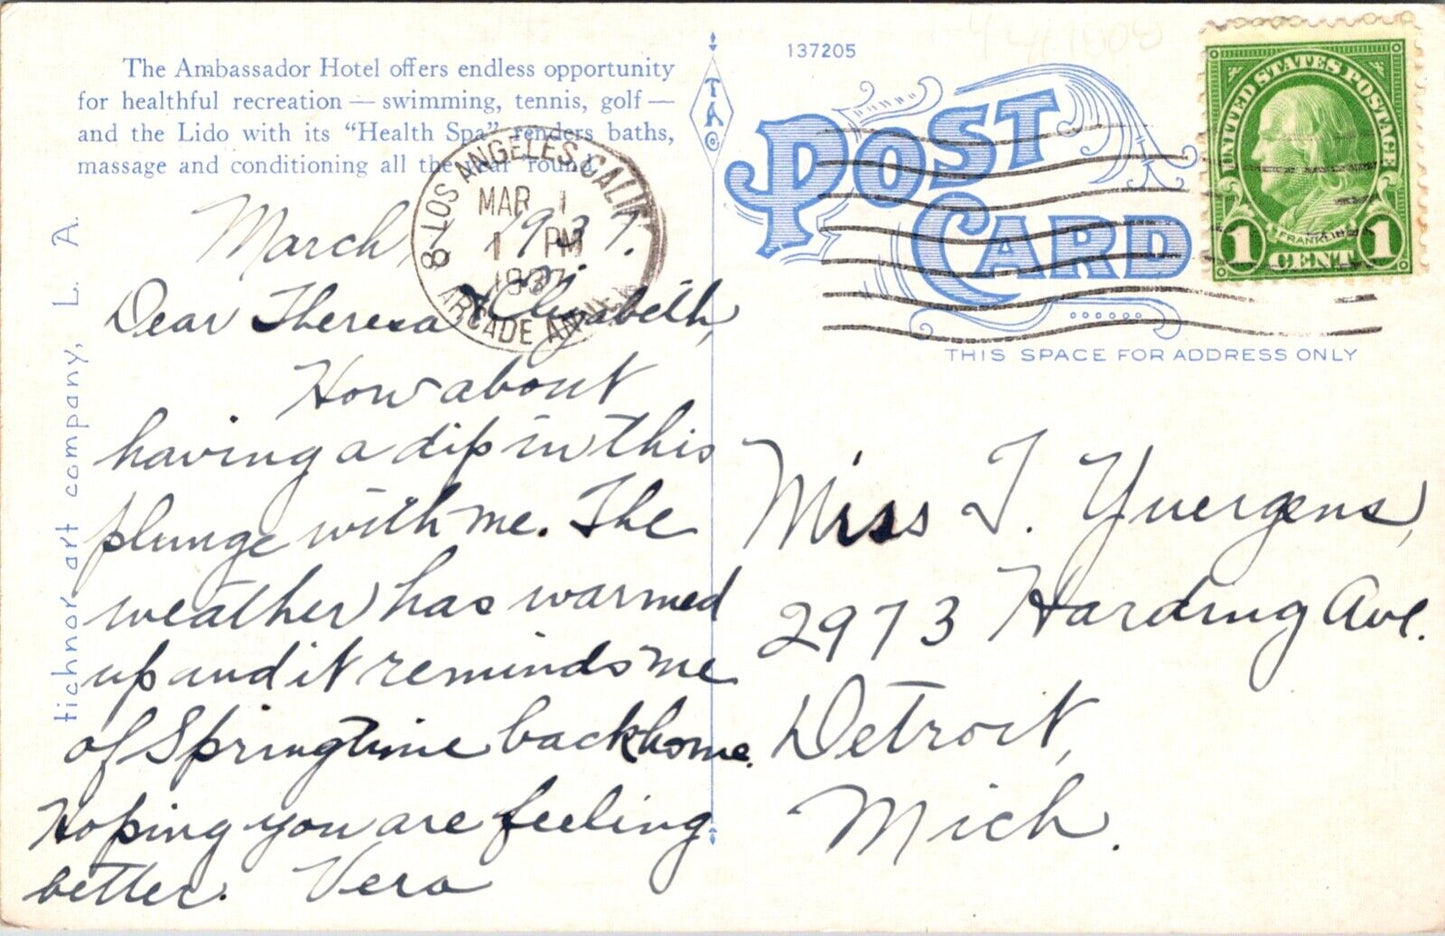 The Ambassador Hotel offers endless opportunity
for healthful recreation — swimming, tennis, golf —
and the Lido with its "Health Spa" renders baths,
massage and conditioning all the year round.
tichnor art company, L. A.
TAC
137205
POST
CARD
THIS SPACE FOR ADDRESS ONLY
UNITED STATES POSTAGE
FRANKLIN
1 CENT 1
LOS ANGELES, CALIF.
8
MAR 1
1 PM
1937
ARCADE ANNEX
March, 1937.
Dear Theresa & Elizabeth,
How about
having a dip in this
plunge with me. The
weather has warmed
up and it reminds me
of Springtime back home.
Hoping you are feeling
better. Vera
Miss T. Yuergens,
2973 Harding Ave.
Detroit,
Mich.